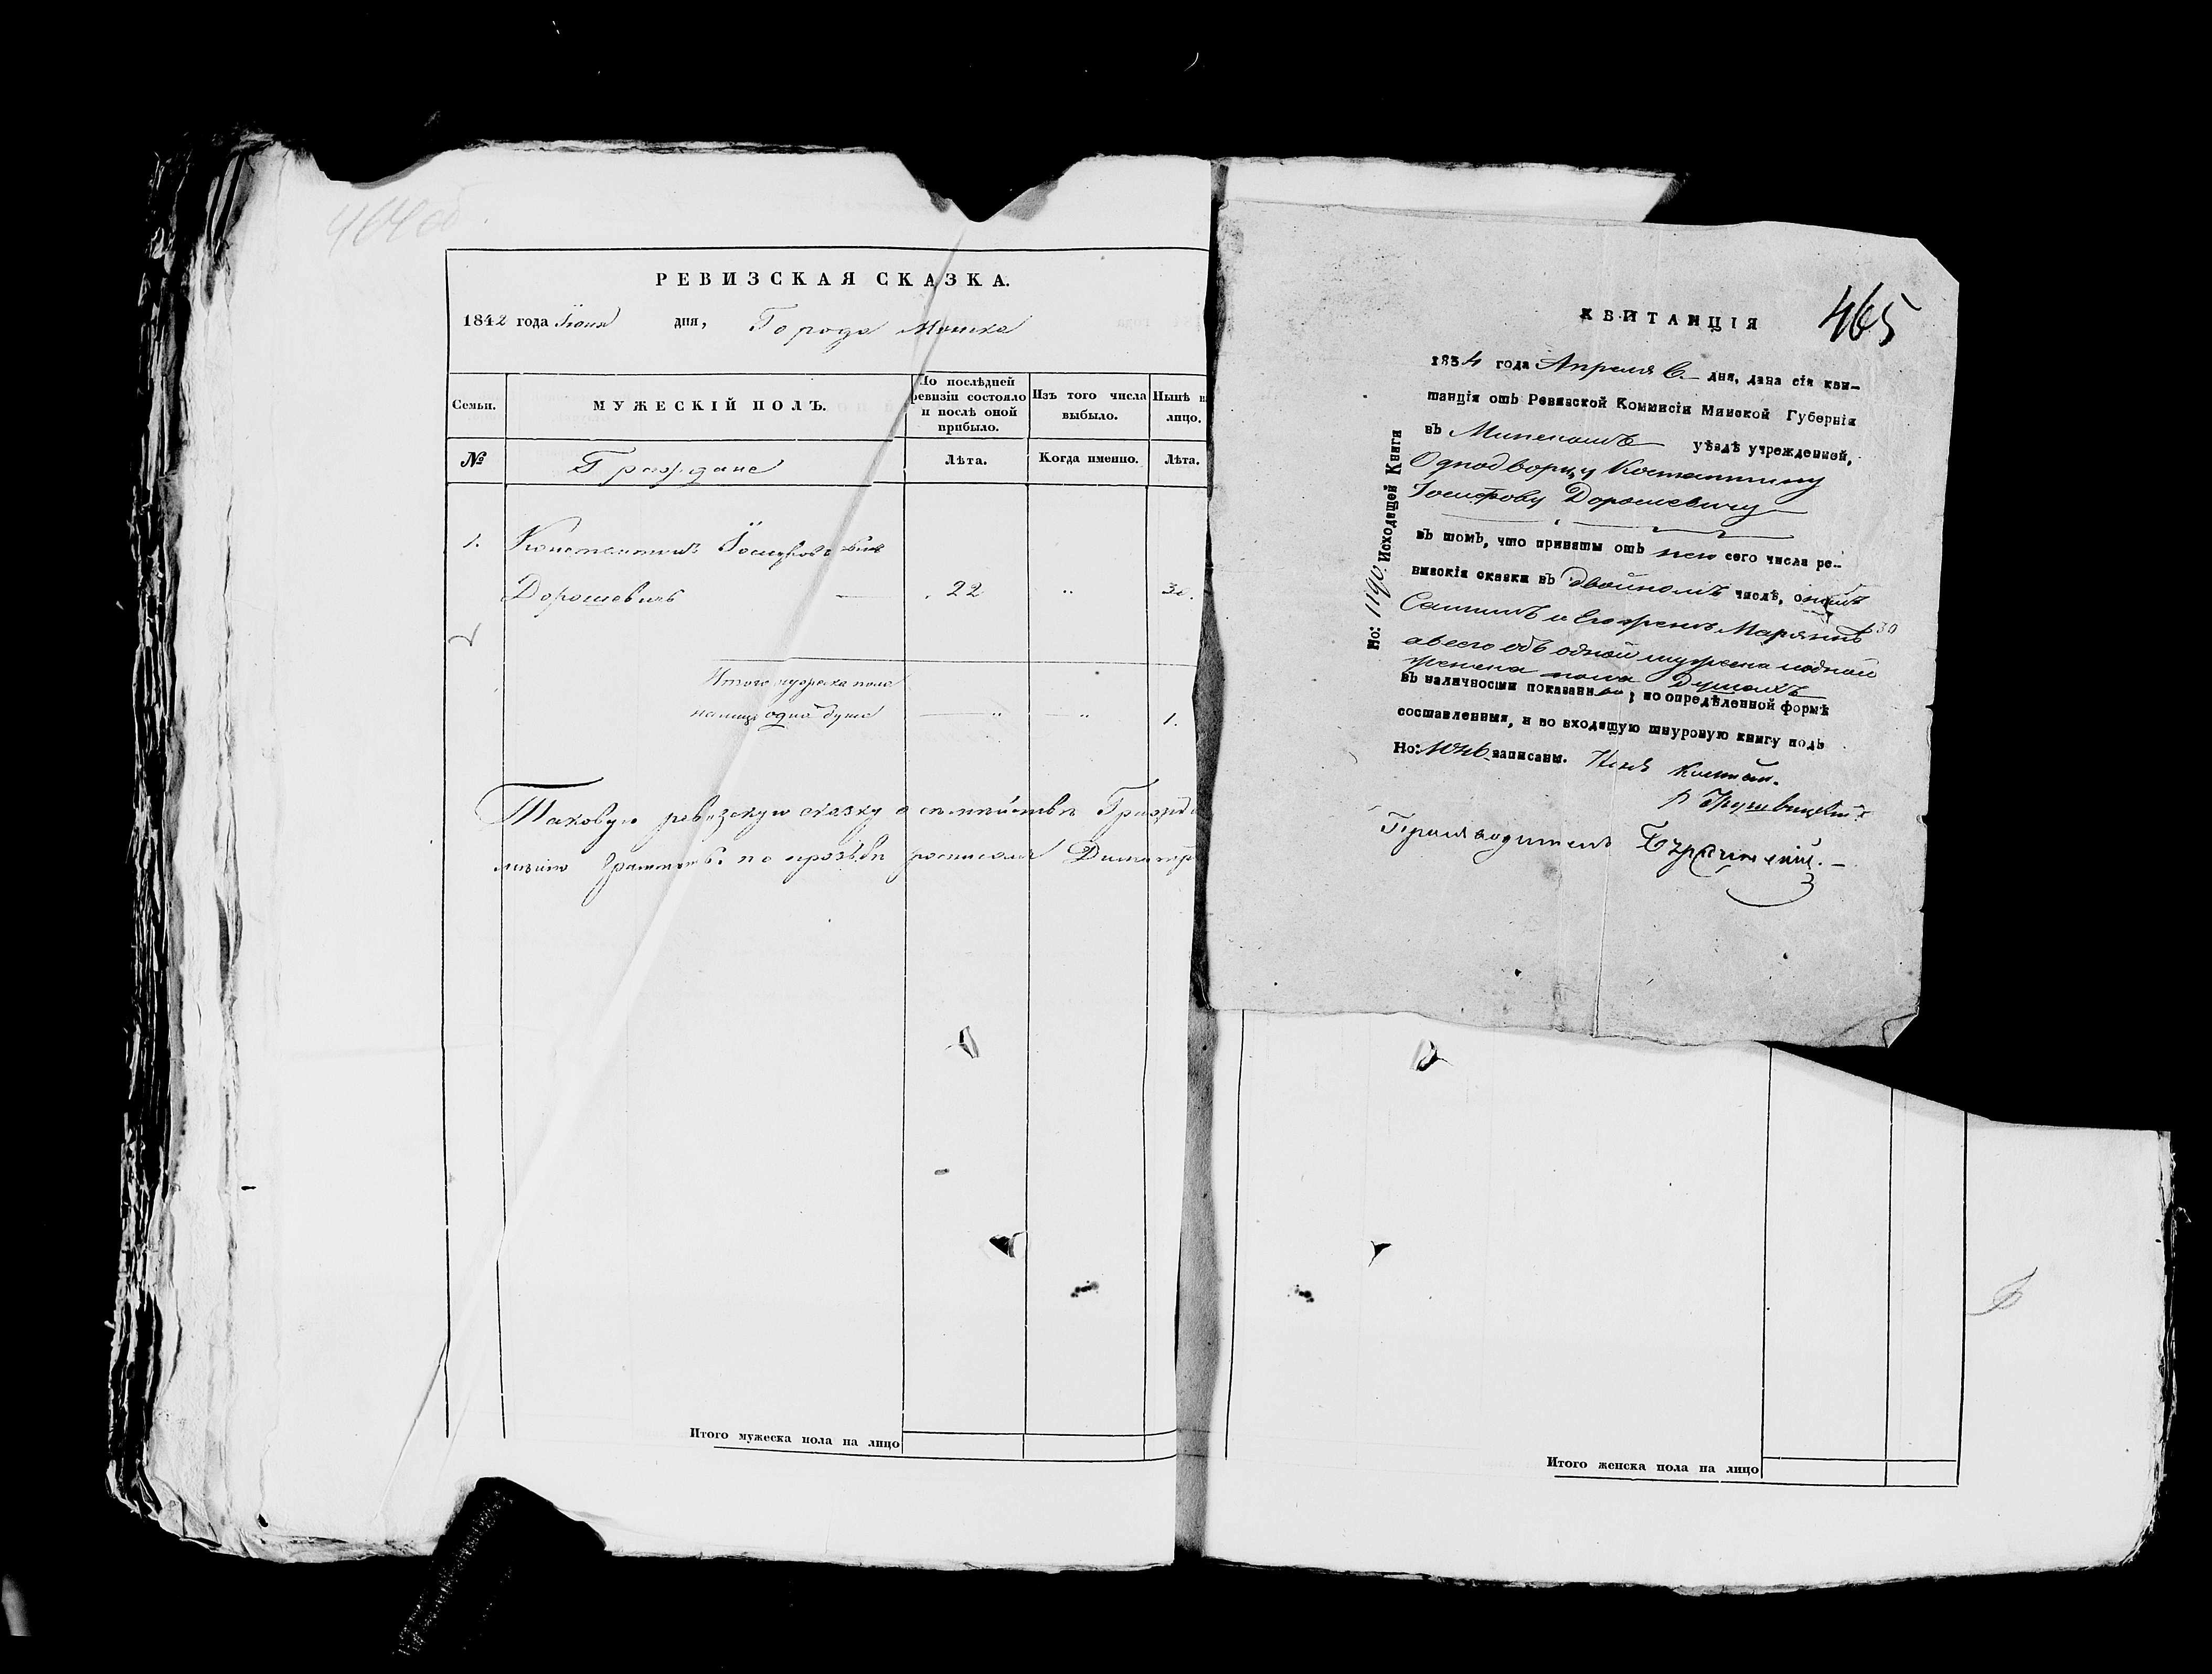 464 об.
РЕВИЗСКАЯ СКАЗКА.
1842 года Іюня дня, Города Минска
Семьи.
МУЖЕСКІЙ ПОЛЪ.
По послѣдней ревизіи состояло и послѣ оной прибыло.
Изъ того числа выбыло.
Нынѣ н лицо.
№
Граждане
Лѣта.
Когда именно.
Лѣта.
1. Константинъ Іосифовъ сынъ
Дорошевичъ 22 " 30.
Итого мужеска пола
на лицо одна душа — " — " 1.
Таковую ревизскую сказку о семействѣ Гражд
грамотѣ по прозбѣ росписался
Итого мужеска пола на лицо
465
КВИТАНЦІЯ
1834 года Апреля 6 дня, дана сія кви-
танція отъ Ревизской Коммисіи Минской Губерніи
въ Минскомъ уѣздѣ учрежденной,
Однодворцу Костантину
Іосифову Дорошевичу
въ томъ, что приняты отъ него сего числа ре-
визскія сказки въ двойномъ числѣ, о немъ
Самимъ и Женѣ Маряннѣ
а всего объ одной мужеска и одной
женска пола Душахъ
въ наличности показанно; по опредѣленной формѣ
составленныя, и во входящую шнуровую книгу подъ
Но: записаны.
Но: 1190 Исходящей Книги
Итого женска пола на лицо